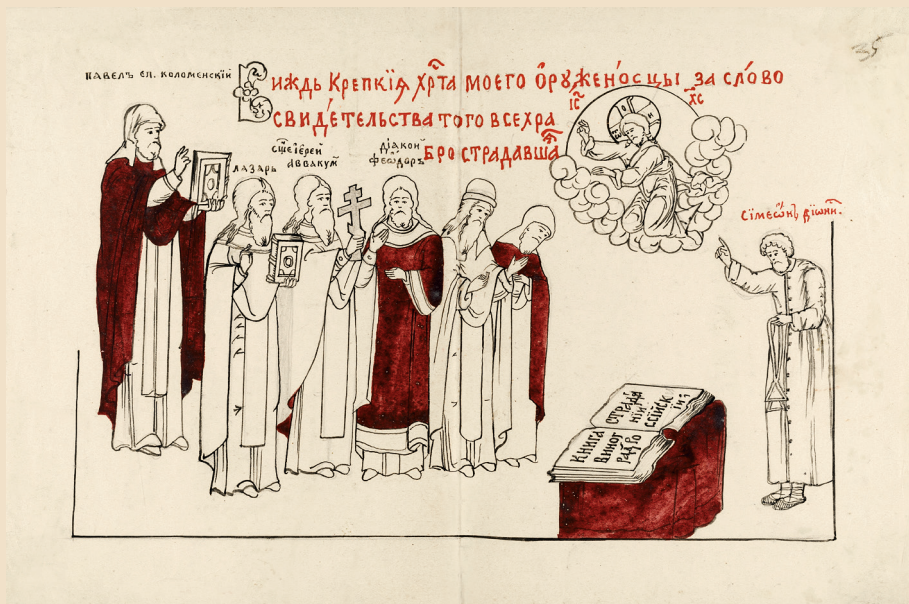 35
павелъ еп. коломенскій
Виждь Крепкїѧ Хр҃та моего ѻруженосцы за слово
свидѣтельства того всехра
бро страдавша
І҃С Х҃С
лазарь
сщ҃еіерей
аввакум
діакон
феѡдоръ
Сімеѡнъ діѡни
КНИГА
ВИНОГ
РАД҃ВО
ОТРАДА
НІИ
ССІЙСК
ІИХ